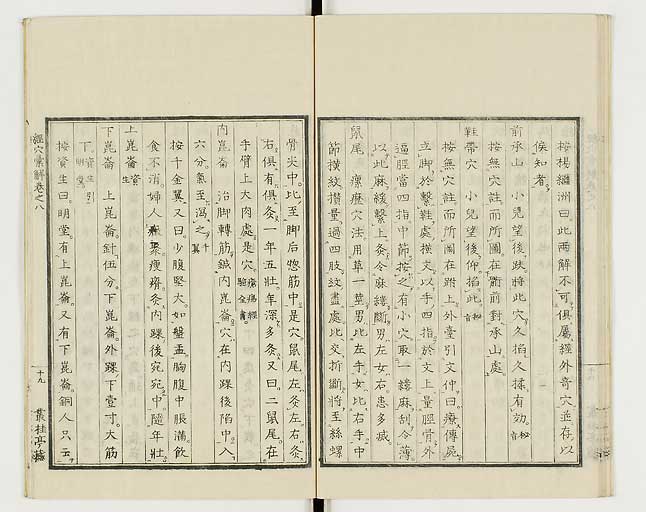 按楊繼洲曰此兩解不可俱屬經外奇穴並存以
俟知者
前承山 小兒望後跌將此穴久掐久揉有効秘旨
按無穴註而所圖在前對承山處
鞋帶穴 小兒望後仰掐此秘旨
按無穴註而所圖在跗上外臺引文仲曰療傳屍
立脚於繫鞋處橫文以手四指於文上量脛骨外
逼脛當四指中節按之有小穴取一縷麻刮令薄
以此麻緩繫上灸令麻縷斷男左女右患多減
鼠尾 瘰癧穴法用草一莖男比左手女比右手中
節橫紋攢量過四肢紋盡處比交折斷將至絲螺
骨尖中比至脚后惣筋中是穴鼠尾左灸左右灸
右俱有俱灸一年五壯年深多灸又曰二鼠尾在
手臂上大肉處是穴瘡瘍經驗全書
內崑崙 治脚轉筋鍼內崑崙穴在內踝後陷中入
六分氣至瀉之千翼
按千金翼又曰少腹堅大如盤盂胸腹中脹滿飲
食不消婦人聚瘦瘠灸內踝後宛宛中隨年壯
上崑崙資生
下崑崙 上崑崙針伍分下崑崙外踝下壹寸大筋
下資生引明堂
按資生曰明堂有上崑崙又有下崑崙銅人只云
經穴彙解卷之八
十九
叢桂亭藏